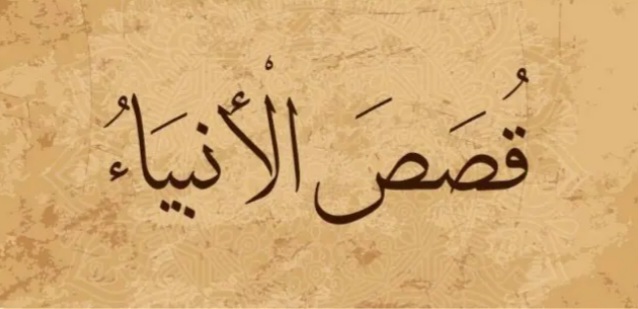 قُصَصَ الْأَنبِيَاءُ